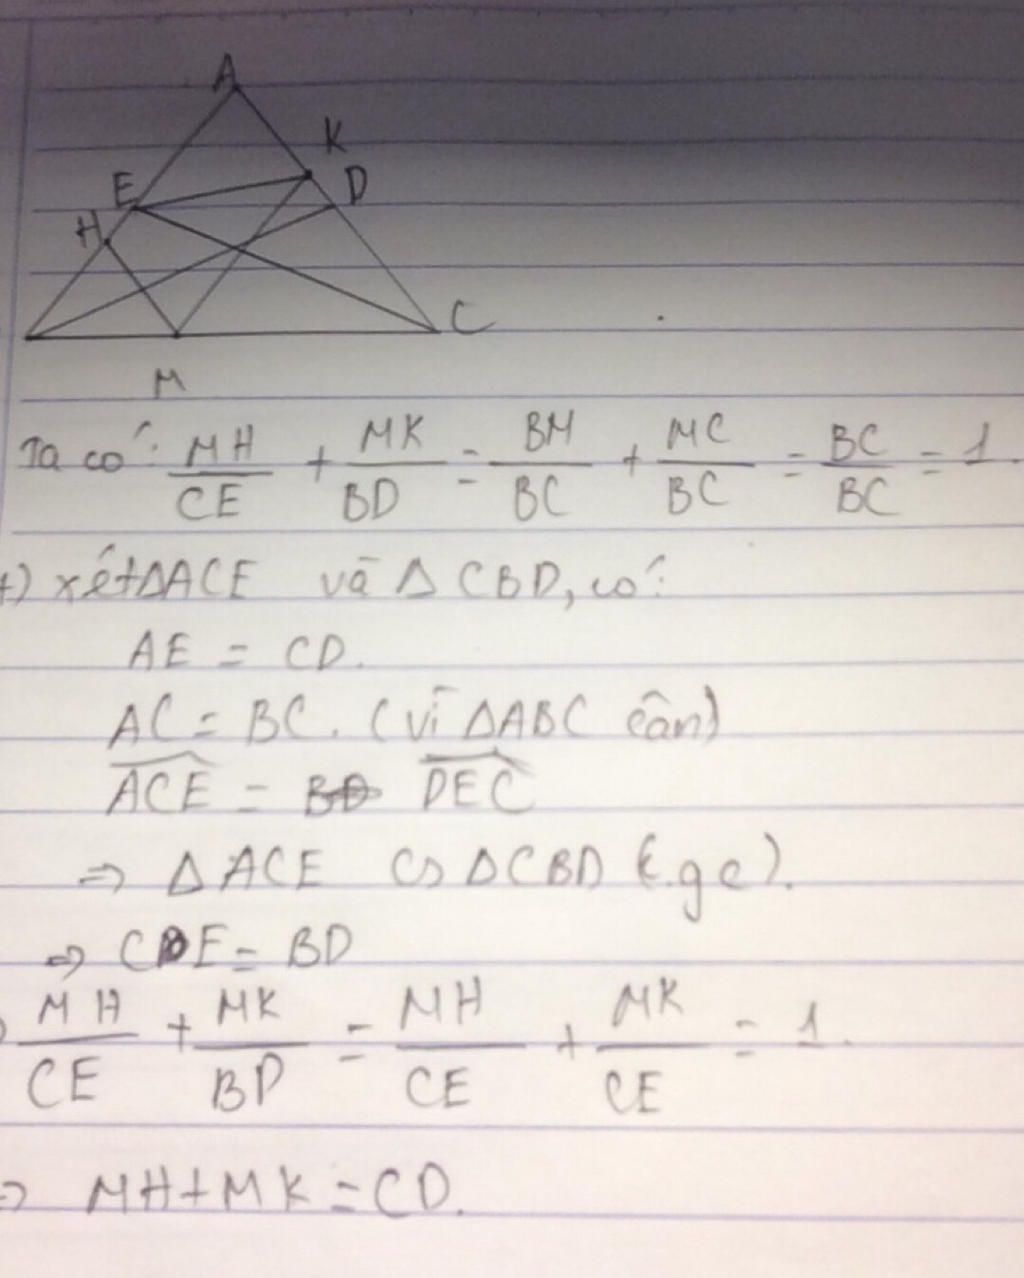 A
K
E
D
H
C
M
Ta có: MH/CE + MK/BD = BM/BC + MC/BC = BC/BC = 1.
+) xét ΔACE và Δ CBD, có:
AE = CD.
AC = BC. (vì ΔABC cân)
ACE = DEC
⇒ ΔACE ∽ ΔCBD (c.g.c).
⇒ CE = BD
MH/CE + MK/BD = MH/CE + MK/CE = 1.
⇒ MH + MK = CD.